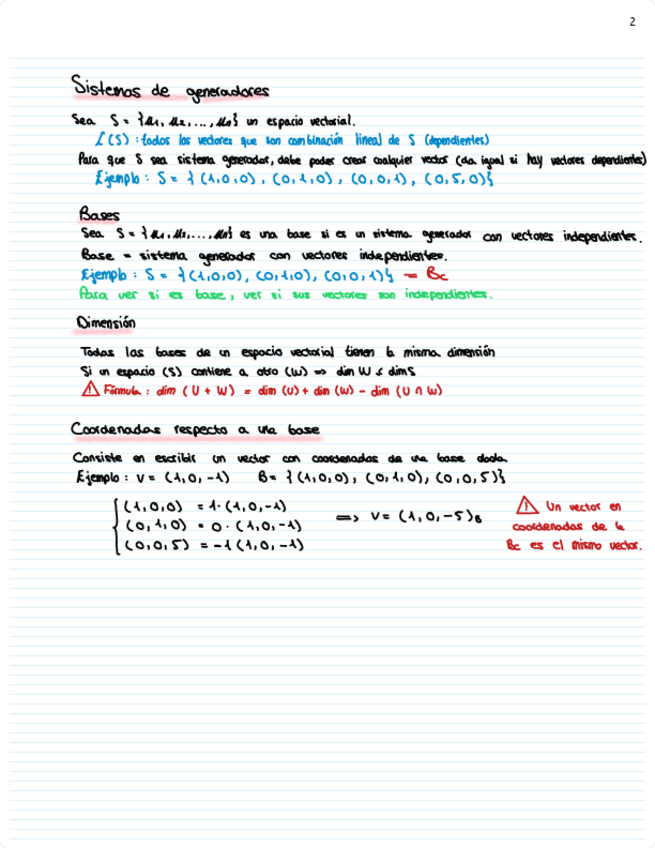 2
Sistemas de generadores
Sea S = {u₁, u₂, ..., uₙ} un espacio vectorial.
L(S) : todos los vectores que son combinación lineal de S (dependientes)
Para que S sea sistema generador, debe poder crear cualquier vector (da igual si hay vectores dependientes)
Ejemplo : S = { (1,0,0), (0,1,0), (0,0,1), (0,5,0)}
Bases
Sea S = {u₁, u₂, ..., uₙ} es una base si es un sistema generador con vectores independientes.
Base = sistema generador con vectores independientes.
Ejemplo : S = {(1,0,0), (0,1,0), (0,0,1)} = Bc
Para ver si es base, ver si sus vectores son independientes.
Dimensión
Todas las bases de un espacio vectorial tienen la misma dimensión
Si un espacio (S) contiene a otro (W) => dim W ≤ dim S
⚠ Fórmula : dim (U + W) = dim (U) + dim (W) - dim (U ∩ W)
Coordenadas respecto a una base
Consiste en escribir un vector con coordenadas de una base dada.
Ejemplo : v = (1,0,-1) B = { (1,0,0), (0,1,0), (0,0,5)}
(1,0,0) = 1·(1,0,-1)
(0,1,0) = 0·(1,0,-1)
(0,0,5) = -1(1,0,-1)
=> v = (1,0,-5)B
⚠ Un vector en
coordenadas de la
Bc es el mismo vector.